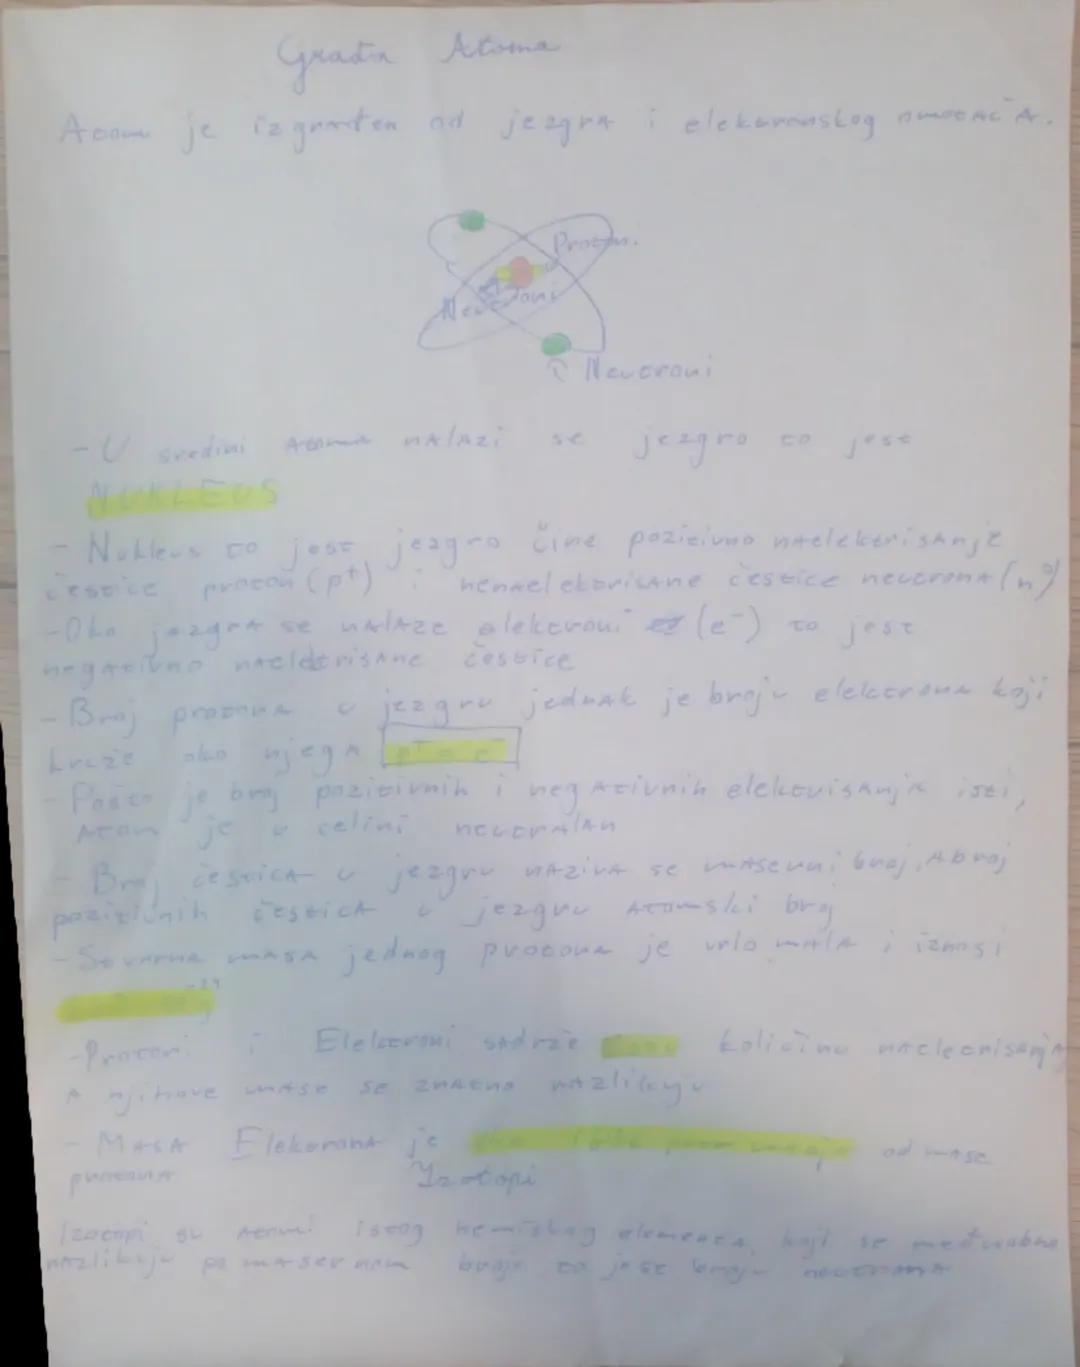 Građa Atoma
Atom je izgrađen od jezgra i elektronskog omotača.
Protoni
Neutroni
Neutroni
- U sredini Atoma nalazi se jezgro to jest
NUKLEUS
- Nukleus to jest jezgro čine pozitivno naelektrisanje
čestice proton (p+) i nenaelektrisane čestice neutrona (n0)
- Oko jezgra se nalaze elektroni (e-) to jest
negativno naelektrisane čestice
- Broj protona u jezgru jednak je broju elektrona koji
kruže oko njega p+ = e-
- Pošto je broj pozitivnih i negativnih elektrisanja isti,
Atom je u celini neutralan
- Broj čestica u jezgru naziva se maseni broj, A broj
pozitivnih čestica u jezgru Atomski broj
- Stvarna masa jednog protona je vrlo mala i iznosi
- Protoni i Elektroni sadrže količinu naelectrisanja
A njihove mase se znatno razlikuju
- Masa Elektrona je od mase
protona
Izotopi
Izotopi su Atomi istog hemiskog elementa, koji se međusobno
razlikuju po masenom broju to jest broju neutrona